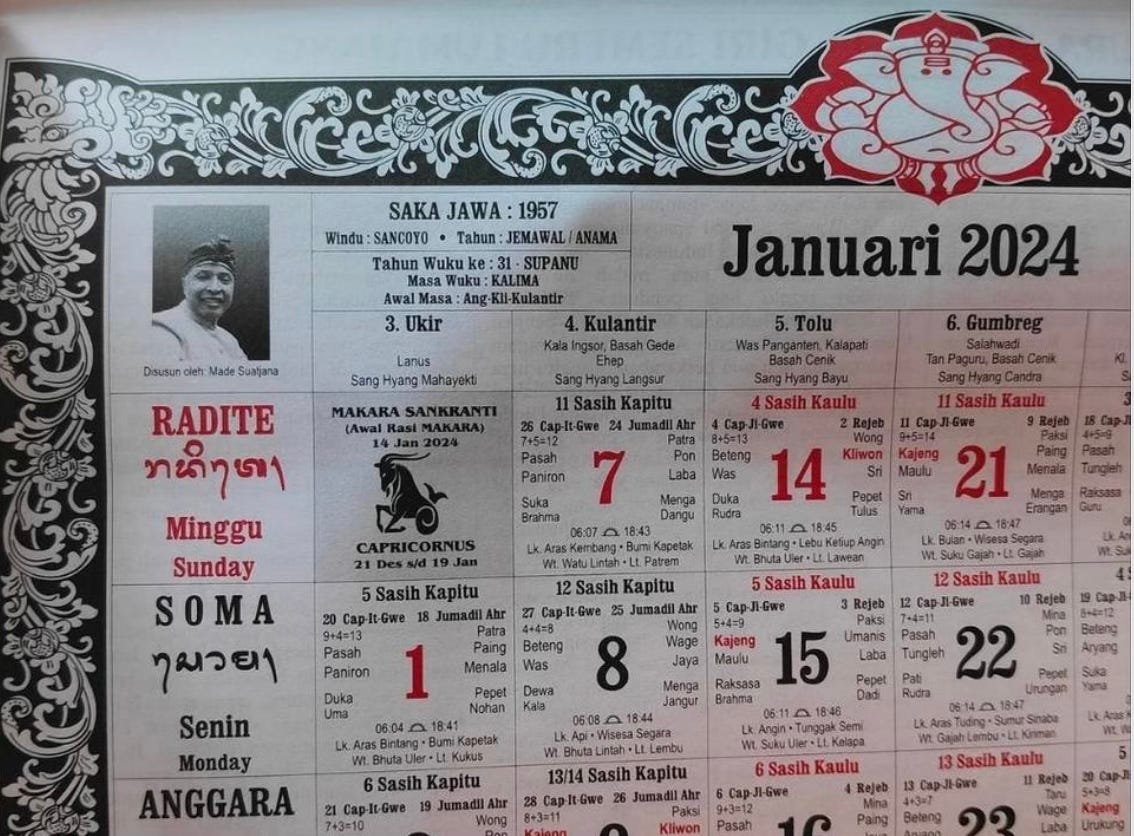 SAKA JAWA : 1957
Windu : SANCOYO • Tahun : JEMAWAL / ANAMA
Tahun Wuku ke : 31 - SUPANU
Masa Wuku : KALIMA
Awal Masa : Ang-Kli-Kulantir
Januari 2024
Disusun oleh: Made Suatjana
3. Ukir
Lanus
Sang Hyang Mahayekti
4. Kulantir
Kala Ingsor, Basah Gede
Ehep
Sang Hyang Langsur
5. Tolu
Was Panganten, Kalapati
Basah Cenik
Sang Hyang Bayu
6. Gumbreg
Salahwadi
Tan Paguru, Basah Cenik
Sang Hyang Candra
RADITE
Minggu
Sunday
MAKARA SANKRANTI
(Awal Rasi MAKARA)
14 Jan 2024
CAPRICORNUS
21 Des s/d 19 Jan
11 Sasih Kapitu
26 Cap-It-Gwe 24 Jumadil Ahr
7+5=12 Patra
Pasah Pon
Paniron 7 Laba
Suka Menga
Brahma Dangu
06:07 18:43
Lk. Aras Kembang • Bumi Kapetak
Wt. Watu Lintah • Lt. Patrem
4 Sasih Kaulu
4 Cap-Ji-Gwe 2 Rejeb
8+5=13 Wong
Beteng Kliwon
Was 14 Sri
Duka Pepet
Rudra Tulus
06:11 18:45
Lk. Aras Bintang • Lebu Ketiup Angin
Wt. Bhuta Uler • Lt. Lawean
11 Sasih Kaulu
11 Cap-Ji-Gwe 9 Rejeb
9+5=14 Paksi
Kajeng Paing
Maulu 21 Menala
Sri Menga
Yama Erangan
06:14 18:47
Lk. Bulan • Wisesa Segara
Wt. Suku Gajah • Lt. Gajah
18 Cap-Ji
4+5=9
Pasah
Tungleh
Raksasa
Guru
SOMA
Senin
Monday
5 Sasih Kapitu
20 Cap-It-Gwe 18 Jumadil Ahr
9+4=13 Patra
Pasah Paing
Paniron 1 Menala
Duka Pepet
Uma Nohan
06:04 18:41
Lk. Aras Bintang • Bumi Kapetak
Wt. Bhuta Uler • Lt. Kukus
12 Sasih Kapitu
27 Cap-It-Gwe 25 Jumadil Ahr
4+4=8 Wong
Beteng Wage
Was 8 Jaya
Dewa Menga
Kala Jangur
06:08 18:44
Lk. Api • Wisesa Segara
Wt. Bhuta Lintah • Lt. Lembu
5 Sasih Kaulu
5 Cap-Ji-Gwe 3 Rejeb
5+4=9 Paksi
Kajeng Umanis
Maulu 15 Laba
Raksasa Pepet
Brahma Dadi
06:11 18:46
Lk. Angin • Tunggak Semi
Wt. Suku Uler • Lt. Kelapa
12 Sasih Kaulu
12 Cap-Ji-Gwe 10 Rejeb
7+4=11 Mina
Pasah Pon
Tungleh 22 Sri
Pati Pepet
Rudra Urungan
06:14 18:47
Lk. Aras Tuding • Sumur Sinaba
Wt. Gajah Lembu • Lt. Kiriman
19 Cap-Ji
8+4=12
Beteng
Aryang
Suka
Yama
ANGGARA
6 Sasih Kapitu
21 Cap-It-Gwe 19 Jumadil Ahr
7+3=10 Wong
13/14 Sasih Kapitu
28 Cap-It-Gwe 26 Jumadil Ahr
8+3=11 Paksi
Kajeng Kliwon
6 Sasih Kaulu
6 Cap-Ji-Gwe 4 Rejeb
9+3=12 Mina
Pasah 16 Paing
13 Sasih Kaulu
13 Cap-Ji-Gwe 11 Rejeb
4+3=7 Taru
Beteng 23 Wage
Laba
20 Cap-Ji
5+3=8
Kajeng
Urukung